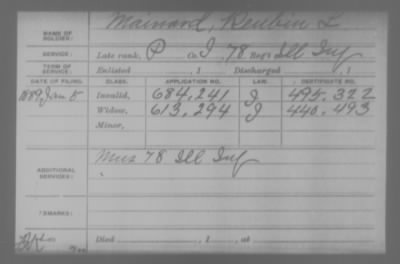 NAME OF SOLDIER: Mainard, Reubin L
SERVICE: Late rank, P Co. I, 78 Reg't Ill Inf
TERM OF SERVICE: Enlisted , 1 Discharged , 1
DATE OF FILING. CLASS. APPLICATION NO. LAW. CERTIFICATE NO.
1889, Jan. 5 Invalid, 684.241 J 495.322
Widow, 613.294 J 440.493
Minor,
ADDITIONAL SERVICES: Mus 78 Ill Inf
REMARKS:
Died , 1 , at